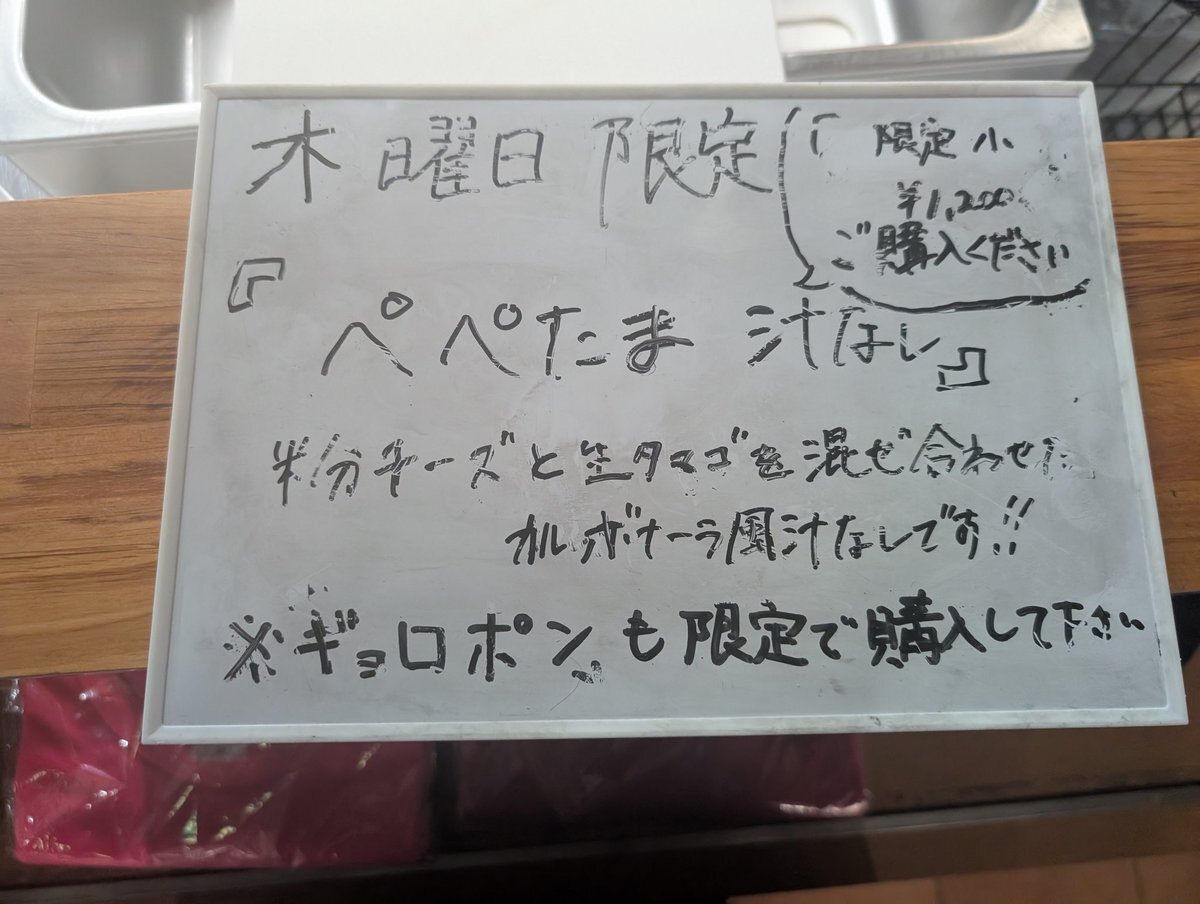 木曜日限定
「限定小
¥1,200
ご購入ください
『ペペたま 汁なし』
粉チーズと生タマゴを混ぜ合わせた
カルボナーラ風汁なしです!!
※ギョロポンも限定で購入して下さい